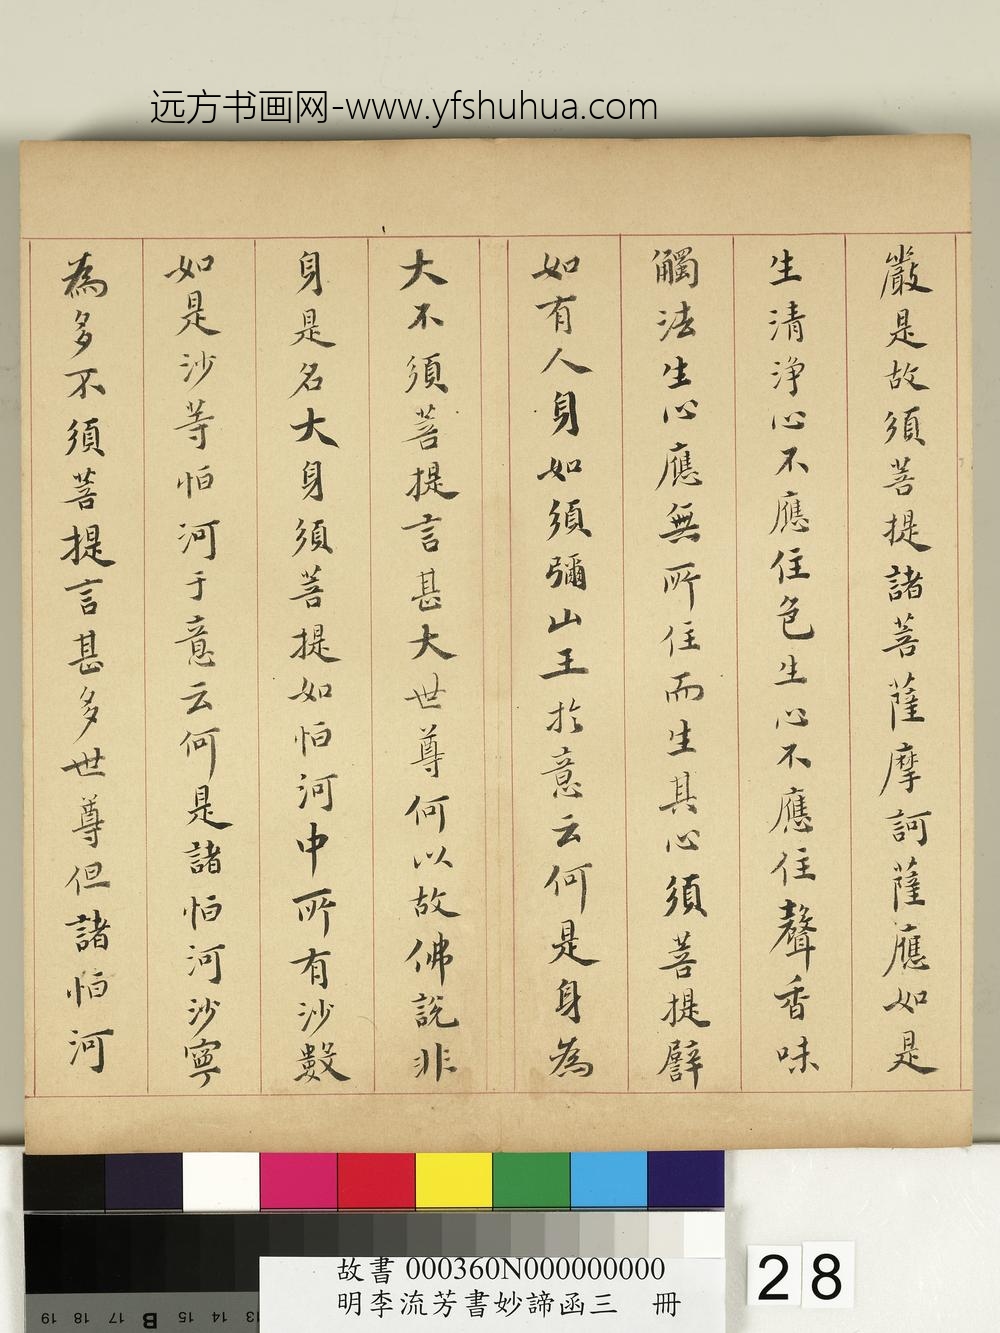 远方书画网-www.yfshuhua.com
嚴是故須菩提諸菩薩摩訶薩應如是
生清淨心不應住色生心不應住聲香味
觸法生心應無所住而生其心須菩提譬
如有人身如須彌山王於意云何是身為
大不須菩提言甚大世尊何以故佛說非
身是名大身須菩提如恒河中所有沙數
如是沙等恒河于意云何是諸恒河沙寧
為多不須菩提言甚多世尊但諸恒河
故書 000360N000000000
明李流芳書妙諦函三 冊
28
19 18 17 B 15 14 13